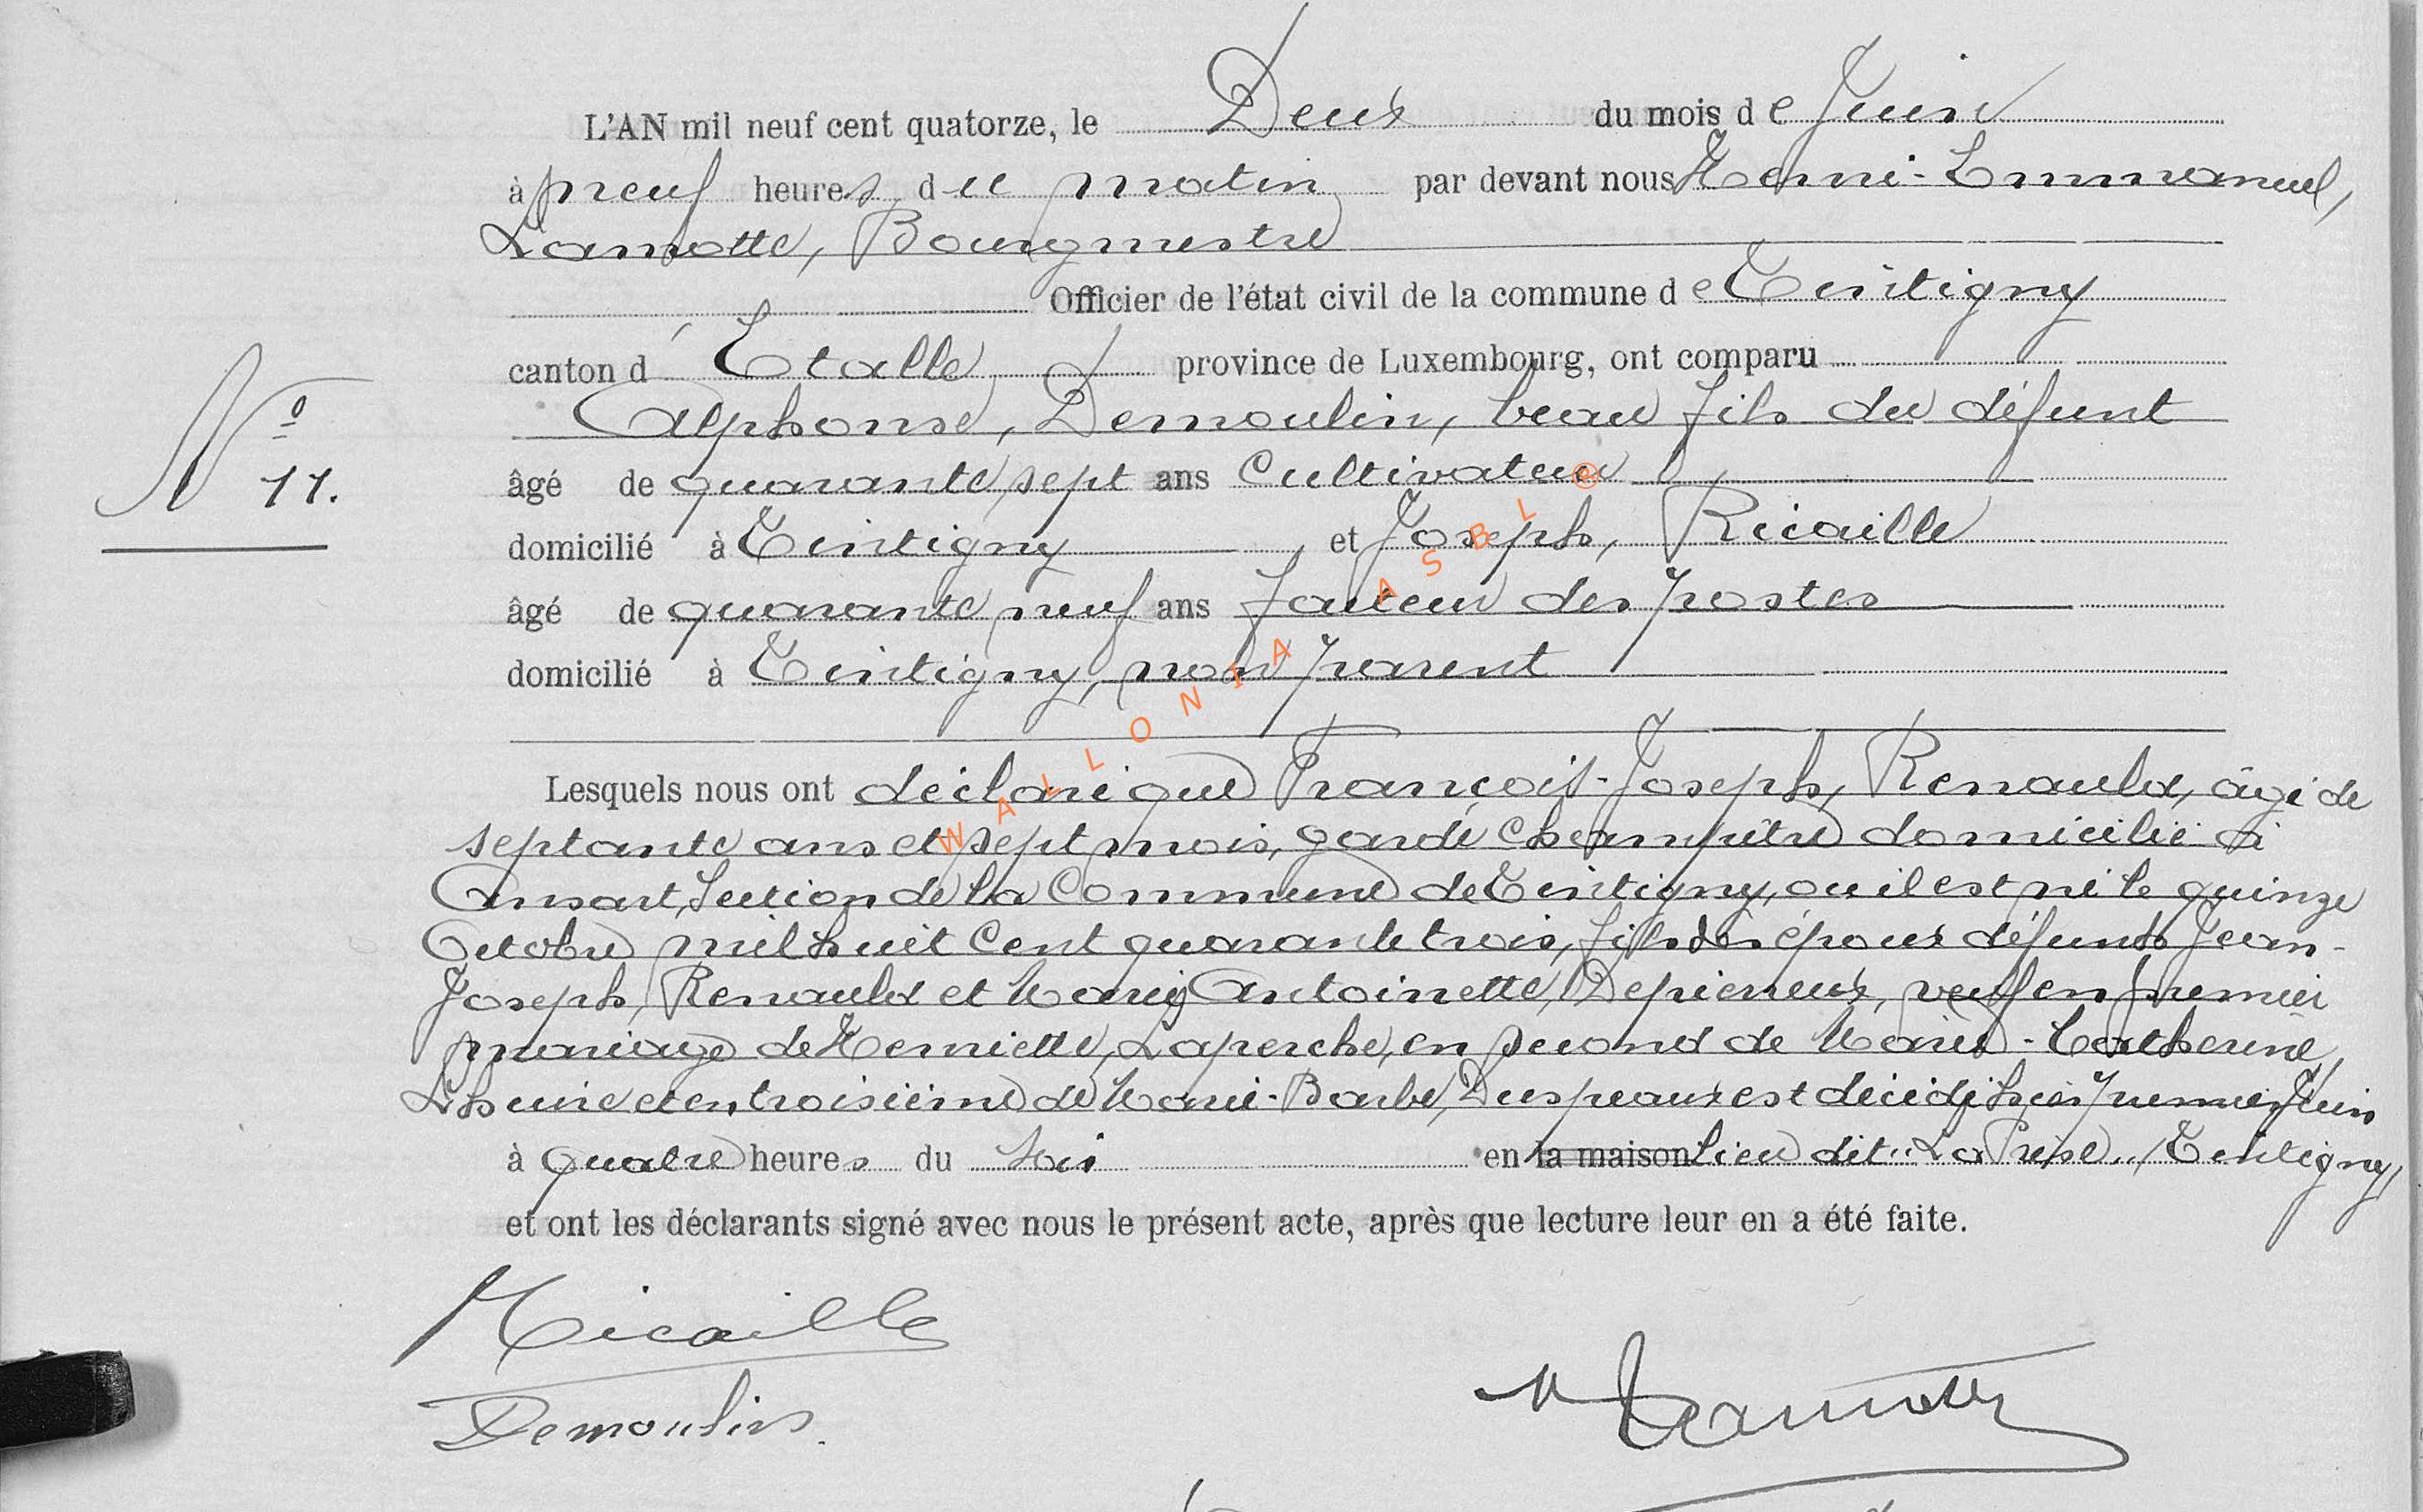 L'AN mil neuf cent quatorze, le Deux du mois de Juin
à neuf heures du matin par devant nous Henri-Emmanuel,
Lamotte, Bourgmestre
Officier de l'état civil de la commune de Tintigny
canton d'Etalle province de Luxembourg, ont comparu
Alphonse, Demoulin, beau fils du défunt
N° 11.
âgé de quarante sept ans Cultivateur
domicilié à Tintigny et Joseph, Ricaille
âgé de quarante neuf ans facteur des postes
domicilié à Tintigny, non parent
Lesquels nous ont déclaré que François-Joseph, Renauld, âgé de
septante ans et sept mois, garde champêtre domicilié à
Ansart, Section de la Commune de Tintigny, ou il est né le quinze
Octobre mil huit Cent quarante trois, fils des époux défunts Jean-
Joseph, Renauld et Marie Antoinette, Depiereux, veuf en premier
mariage de Henriette, Laperche, en second de Marie-Catherine,
et en troisième de Marie-Barbe, Duspeaux est décédé hier premier Juin
à quatre heures du soir en la maison lieu dit "La Prise", Tintigny,
et ont les déclarants signé avec nous le présent acte, après que lecture leur en a été faite.
Ricaille
Demoulin.
H Lamotte
WALLONIA ASBL ©